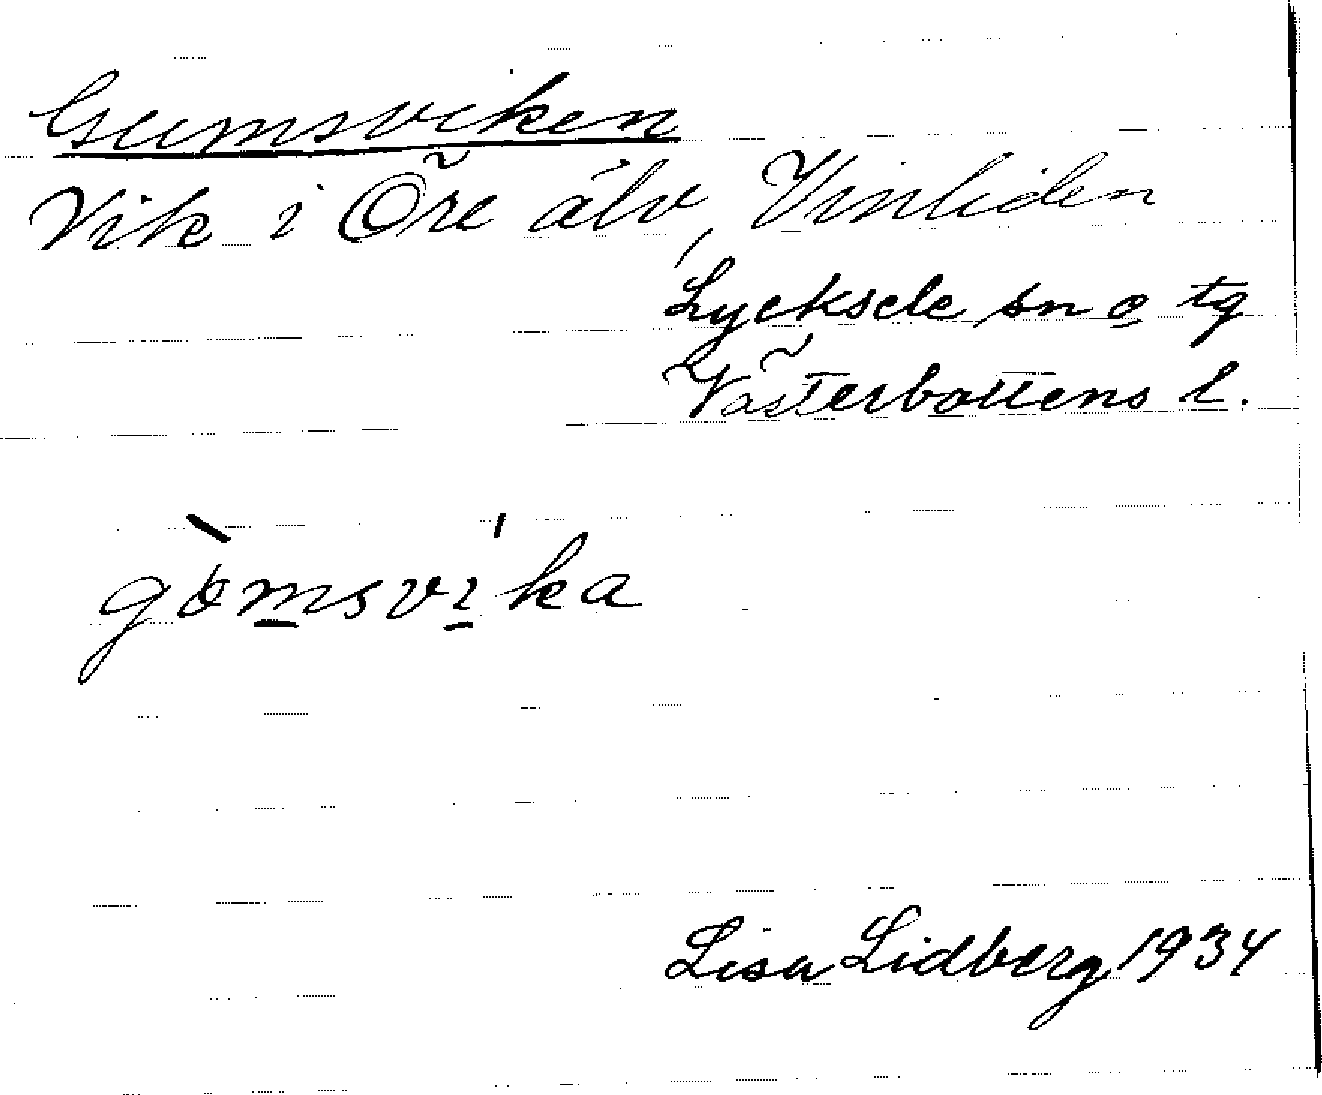 Gumsviken
Vik i Öre älv, Vinliden
Lycksele sn o tg
Västerbottens l.
gòmsvíka
Lisa Lidberg 1934